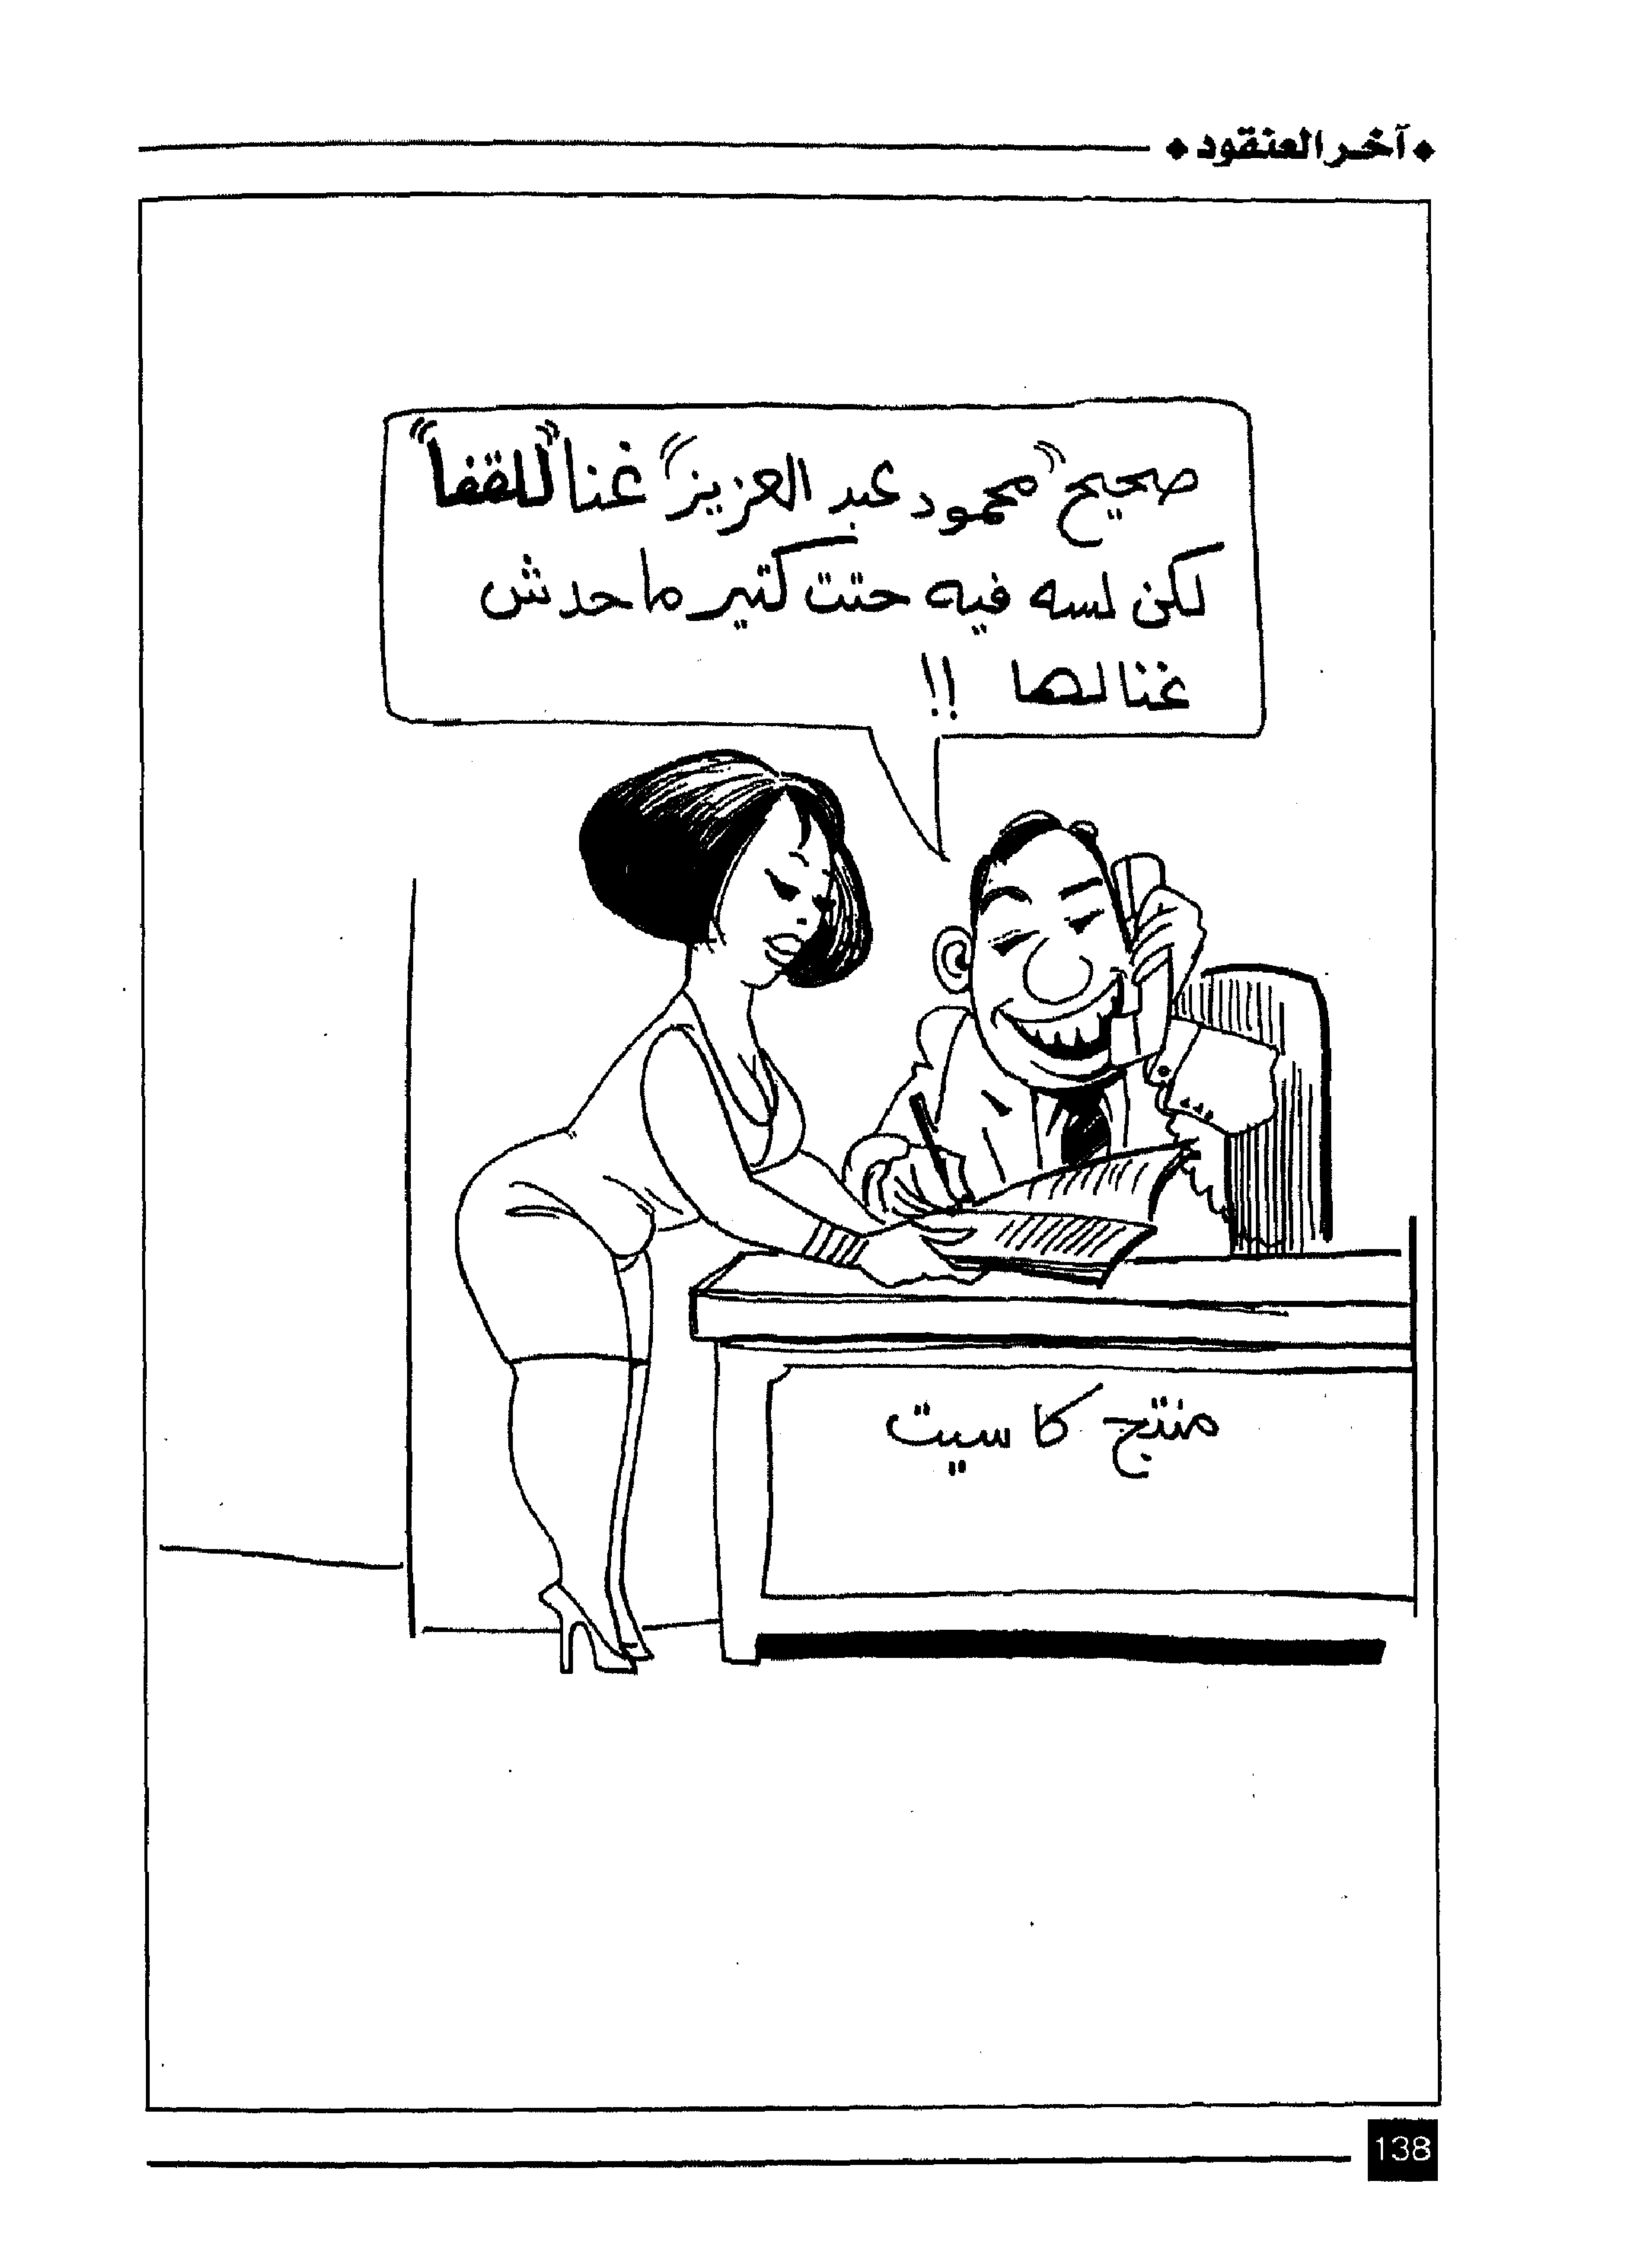 آخر العنقود
صحيح "محمود عبد العزيز" غنا "للقفا"
لكن لسه فيه حتت كتير ماحدش
غنالها !!
منتج كاسيت
138